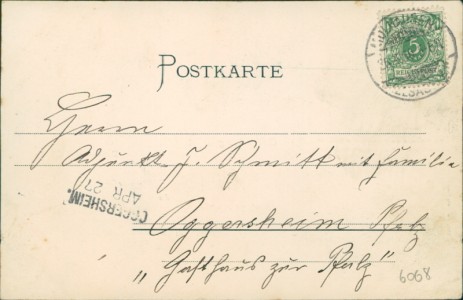 MÜLHAUSEN
5
REICHSPOST
ELSASS
POSTKARTE
Herrn
Adjunkt J. Schmitt mit Familie
OGGERSHEIM.
APR 27
Oggersheim Pfalz
„Gasthaus zur Pfalz“
6068